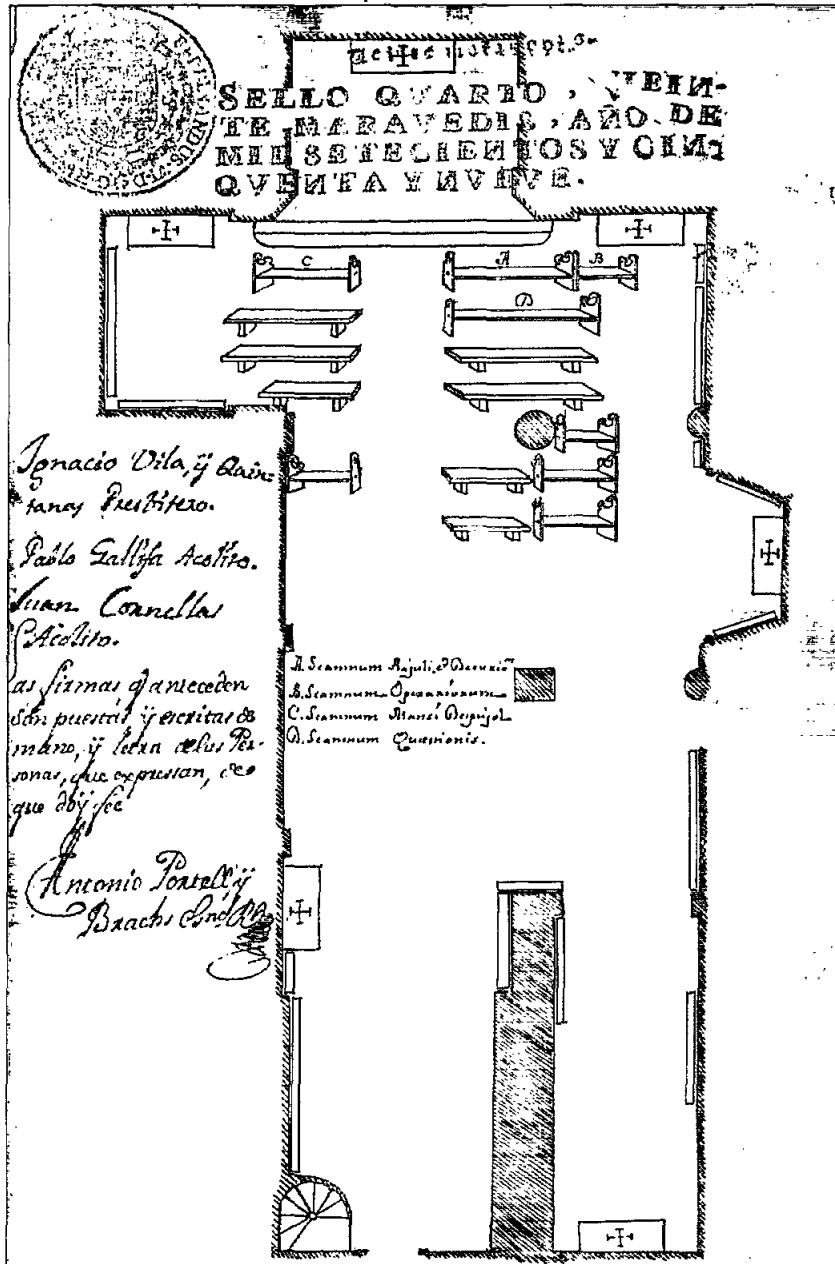 SELLO QVARTO, VEIN-
TE MARAVEDIS, AÑO DE
MIL SETECIENTOS Y CIN-
QVENTA Y NVEVE.
C
A
B
D
Ignacio Vila, ÿ Quin-
tanas Presbitero.
Pablo Gallifa Acolito.
Juan Cornellas
Acolito.
as firmas q antecedén
són puestas ÿ escritas de
mano, ÿ letra delas Per-
sonas, que expressan, de
que doÿ fee
Antonio Portell, ÿ
Brachs
A. Scamnum Bajuli,
B. Scamnum Operariorum
C. Scamnum Mansi Despujol
D. Scamnum